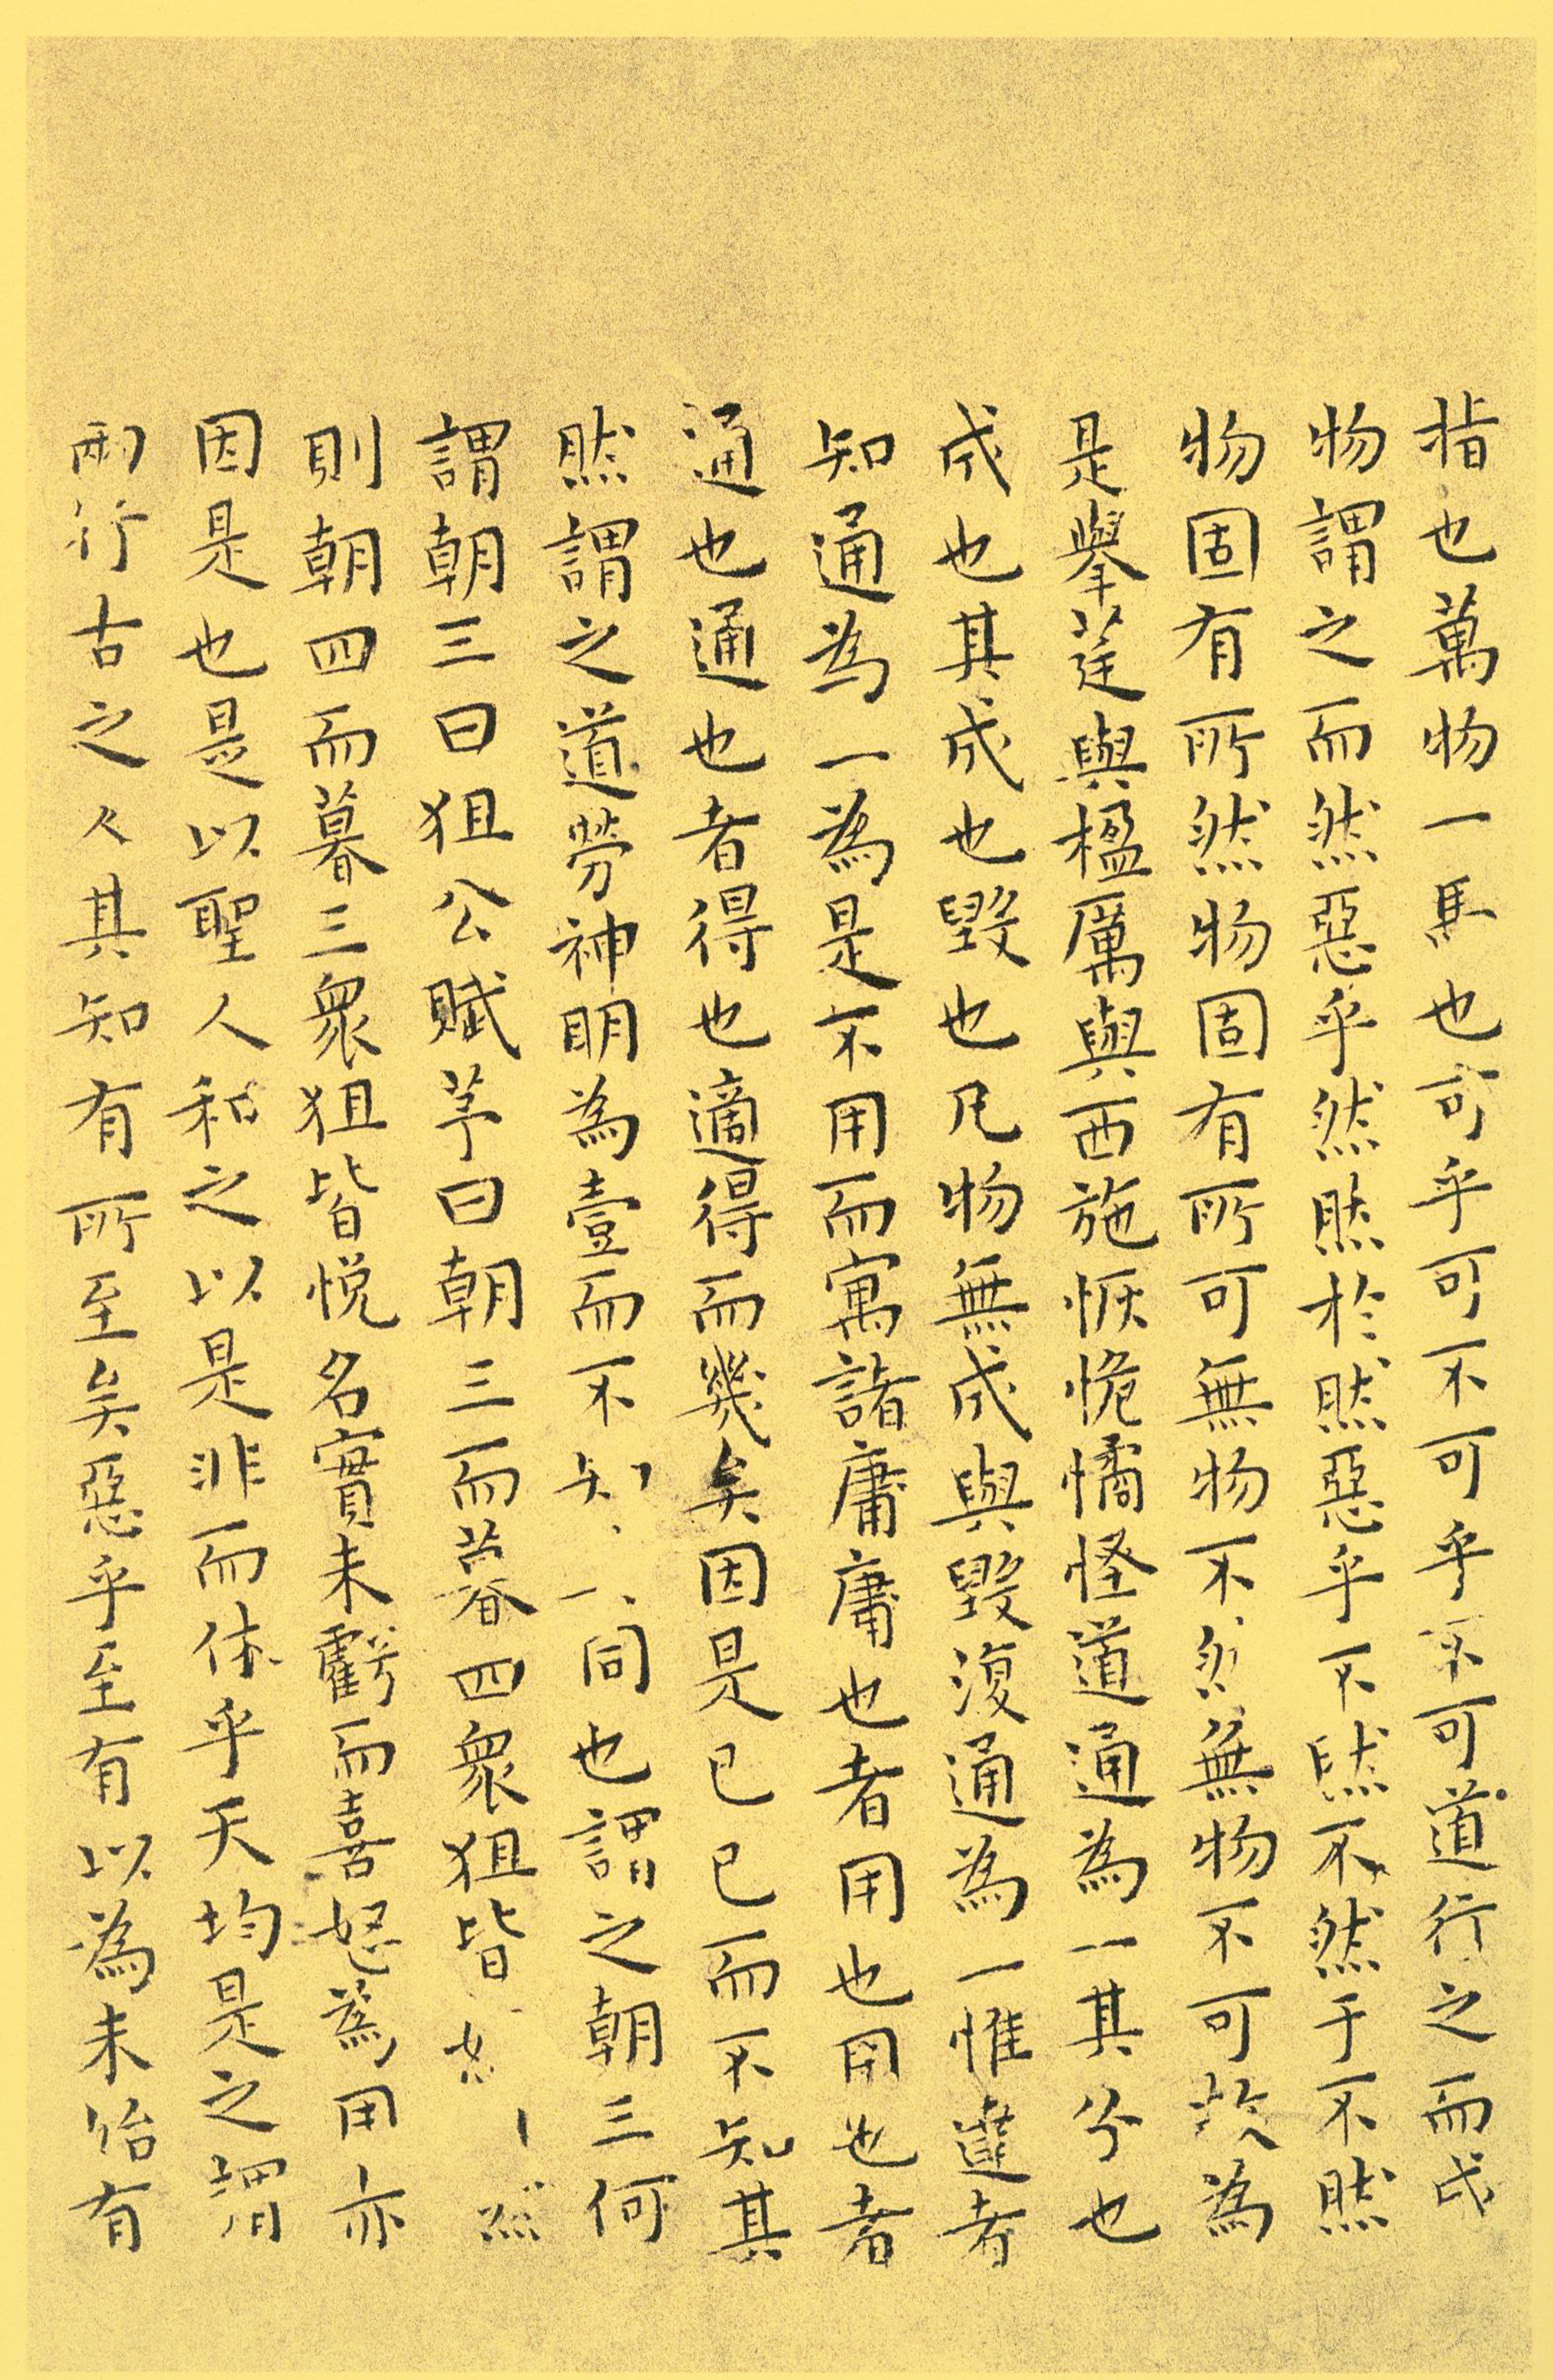 指也萬物一馬也可乎可不可乎不可道行之而成
物謂之而然惡乎然然於然惡乎不然不然于不然
物固有所然物固有所可無物不然無物不可故為
是舉莛與楹厲與西施恢恑憰怪道通為一其分也
成也其成也毀也凡物無成與毀復通為一惟達者
知通為一為是不用而寓諸庸庸也者用也用也者
通也通也者得也適得而幾矣因是已已而不知其
然謂之道勞神明為壹而不知同也謂之朝三何
謂朝三曰狙公賦芧曰朝三而暮四衆狙皆
則朝四而暮三衆狙皆悅名實未虧而喜怒為用亦
因是也是以聖人和之以是非而休乎天均是之謂
兩行古之人其知有所至矣惡乎至有以為未始有